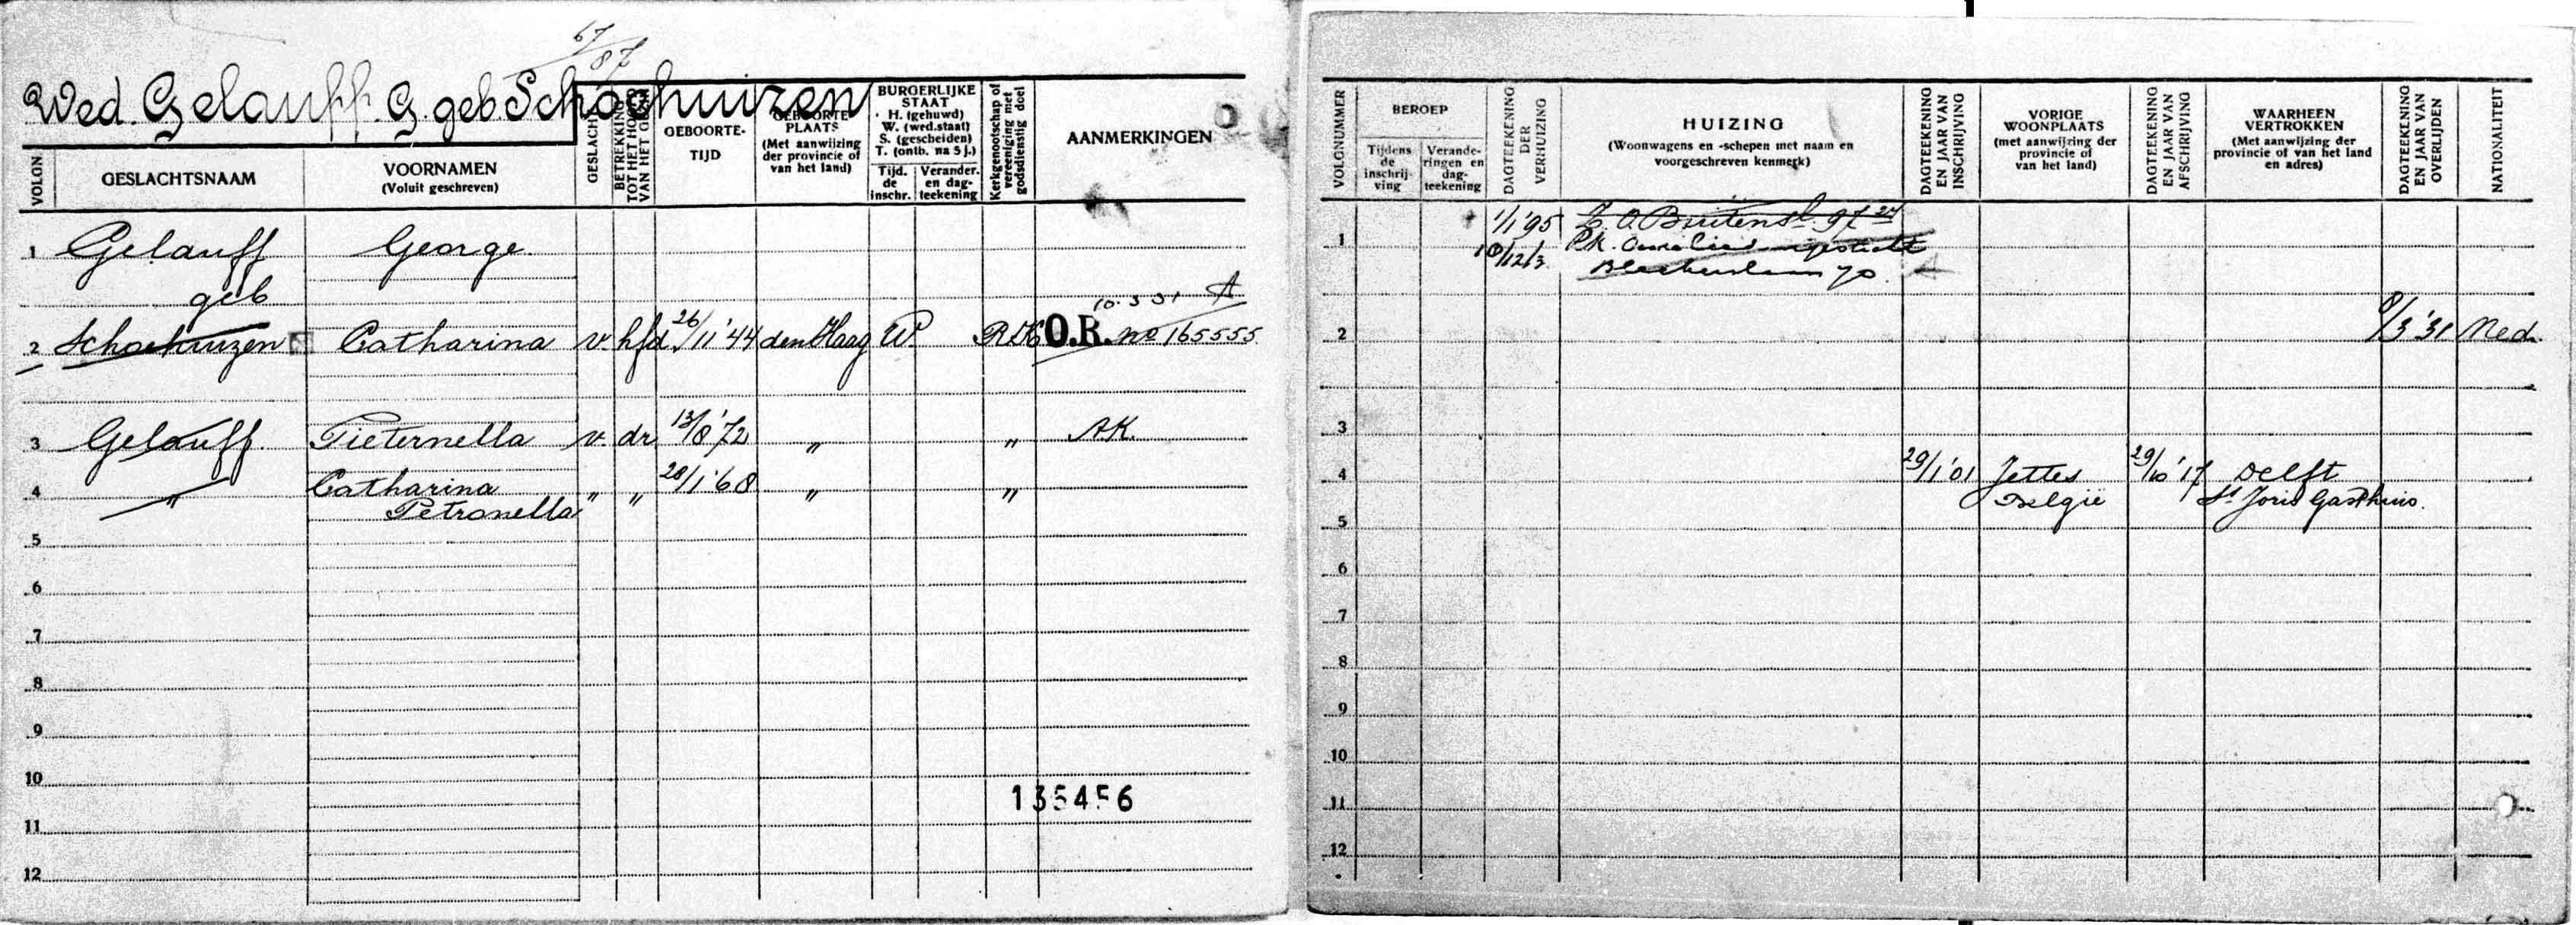 67/87
Wed. Gelauff. G. geb. Schoehuizen
VOLGN.
GESLACHTSNAAM
VOORNAMEN
(Voluit geschreven)
GESLACHT
BETREKKING
TOT HET HOOFD
VAN HET GEZIN
GEBOORTE-
TIJD
GEBOORTE-
PLAATS
(Met aanwijzing
der provincie of
van het land)
BURGERLIJKE
STAAT
H. (gehuwd)
W. (wed.staat)
S. (gescheiden)
T. (ontb. na 5 j.)
Tijd.
de
inschr.
Verander.
en dag-
teekening
Kerkgenootschap of
vereeniging met
godsdienstig doel
AANMERKINGEN
1 Gelauff George.
geb
2 Schoehuizen Catharina v. hfd. 26/11 '44 den Haag W. R.K. O.R. no 165555
10. 3 31 A
3 Gelauff. Pieternella v. dr 13/8 '72 " " A.K.
4 " Catharina " " 28/1 '68 " "
Petronella
5
6
7
8
9
10
135456
11
12
VOLGNUMMER
BEROEP
Tijdens
de
inschrij-
ving
Verande-
ringen en
dag-
teekening
DAGTEEKENING
DER
VERHUIZING
HUIZING
(Woonwagens en -schepen met naam en
voorgeschreven kenmerk)
DAGTEEKENING
EN JAAR VAN
INSCHRIJVING
VORIGE
WOONPLAATS
(met aanwijzing der
provincie of
van het land)
DAGTEEKENING
EN JAAR VAN
AFSCHRIJVING
WAARHEEN
VERTROKKEN
(Met aanwijzing der
provincie of van het land
en adres)
DAGTEEKENING
EN JAAR VAN
OVERLIJDEN
NATIONALITEIT
1 1/1 '95 Z. O. Buitens. 97
10/12/3
70.
2 8/3 '31 Ned.
3
4 29/1 '01 Jettes 29/10 '17 Delft
België St Joris Gasthuis.
5
6
7
8
9
10
11
12